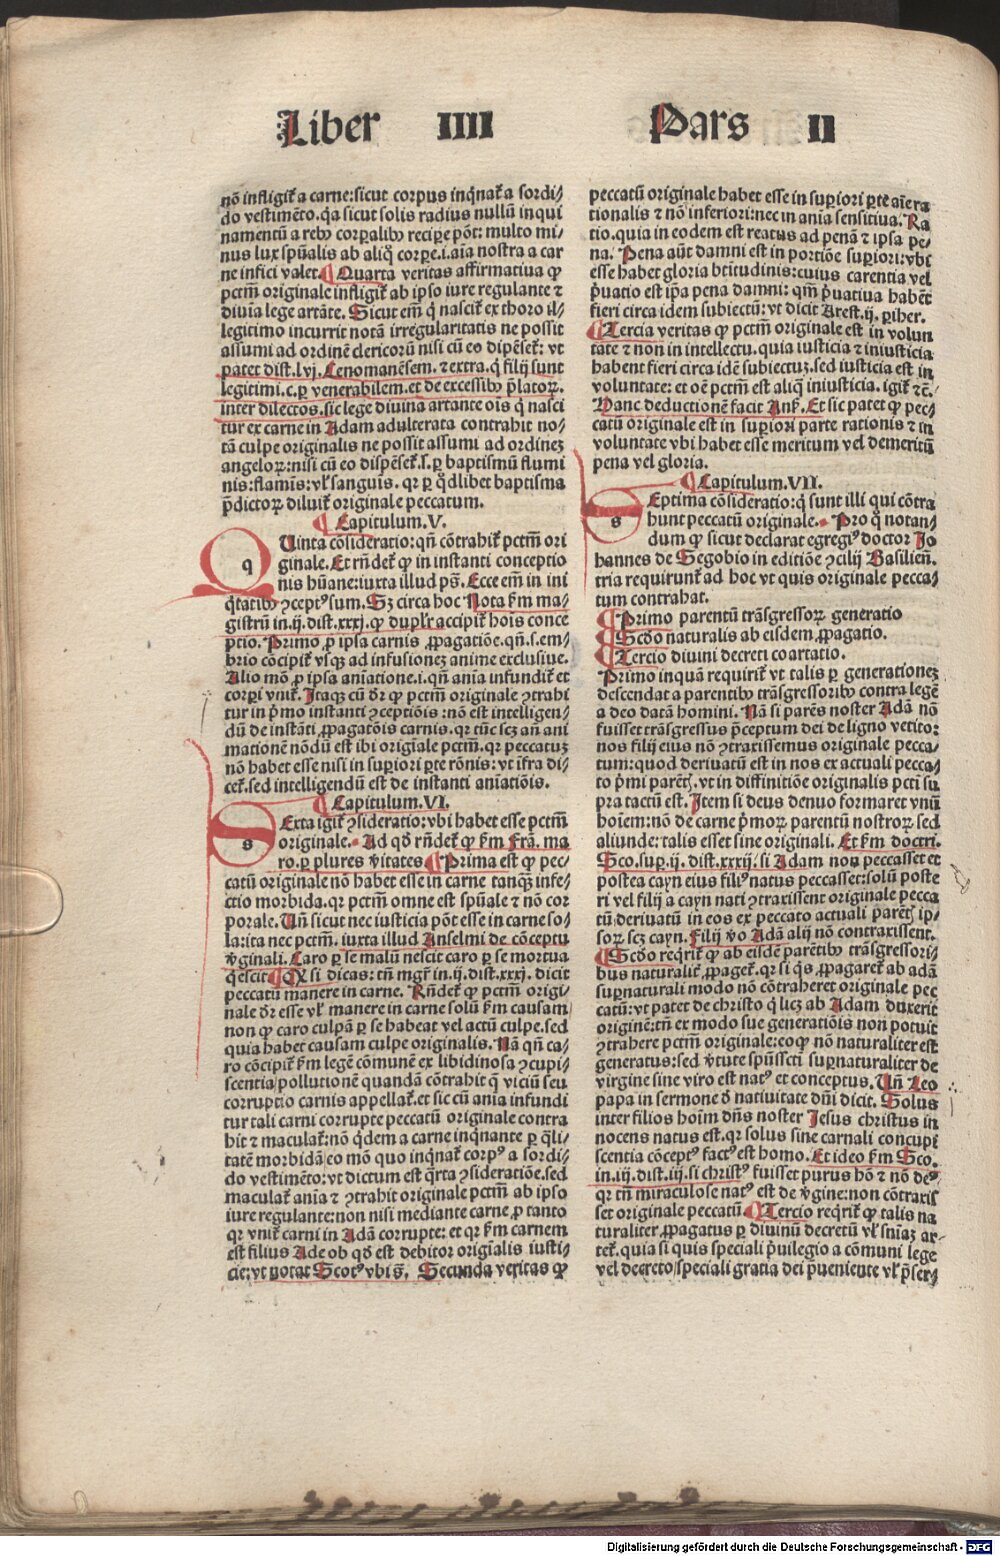 Liber IIII Pars II
nō infligit᷑ a carne:sicut corpus inq̇nat᷑ a sordi⸗
do vestimēto.q̇a sicut solis radius nullū inqui
namentū a rebꝰ corꝑalibꝰ reciꝑe pōt: multo mi⸗
nus lux spūalis ab aliq̇ corꝑe.i.aīa nostra a car
ne infici valet.¶Quarta veritas affirmatiua ꝙ
pctm̄ originale infligit᷑ ab ipso iure regulante ⁊
diuīa lege artāte. Sicut em̄ q̇ nascit᷑ ex thoro il⸗
legitimo incurrit notā irregularitatis ne possit
assumi ad ordinē clericorū nisi cū eo dipēset᷑: vt
patet dist.lvj. Cenomanēsem. ⁊ extra.q̇ filij sunt
legitimi.c.ꝑ venerabilem.et de excessibꝰ p̄latoꝝ.
inter dilectos.sic lege diuina artante oīs q̇ nasci
tur ex carne in Adam adulterata contrahit no⸗
tā culpe originalis ne possit assumi ad ordinez
angeloꝝ:nisi cū eo dispēset᷑.s.ꝑ baptismū flumi
nis:flamīs: vl̓ sanguīs. qꝛ ꝑ q̇dlibet baptisma
p̄dictoꝝ diluit᷑ originale peccatum.
¶ Capitulum.V.
q Uinta cōsideratio:qn̄ cōtrahit᷑ pctm̄ ori
ginale.Et rn̄det᷑ ꝙ in instanti conceptio
nis hūane:iuxta illud ps̄. Ecce em̄ in ini
q̇tatibꝰ ꝯceptꝰ sum. Sꝫ circa hoc Nota ẜm ma⸗
gistrū in.ij.dist.xxxj.ꝙ dupl̓r accipit᷑ hoīs conce
ptio. Primo ꝓ ipsa carnis ꝓpagatiōe.qn̄.s.em⸗
brio cōcipit᷑ vsqꝫ ad infusionez anime exclusiue.
Alio mō ꝓ ipsa aniatione.i.qn̄ ania infundit᷑ et
corꝑi vnit᷑. Itaqꝫ cū dr̄ ꝙ pctm̄ originale ꝯtrahi
tur in p̓mo instanti ꝯceptiōis :nō est intelligen⸗
dū de instāti ꝓpagatōis carnis.qꝛ tūc scꝫ an̄ ani
mationē nōdū est ibi origīale pctm̄.qꝛ peccatuꝫ
nō habet esse nisi in suꝑiori ꝑte rōnis: vt īfra di⸗
cet᷑.sed intelligendū est de instanti aniatiōis.
¶ Capitulum.VI.
s Exta igit᷑ ꝯsideratio:vbi habet esse pctm̄
originale. Ad qd̄ rn̄det᷑ ꝙ ẜm Frā. ma
ro.ꝑ plures v̓itates ¶Prima est ꝙ pec⸗
catū originale nō habet esse in carne tanq̇ꝫ infe⸗
ctio morbida. qꝛ pctm̄ omne est spūale ⁊ nō cor
porale. Un̄ sicut nec iusticia pōt esse in carne so⸗
la:ita nec pctm̄. iuxta illud Anselmi de cōceptu
v̓ginali. Caro ꝑ se malū nescit caro ꝑ se mortua
q̇escit ¶Qꝫ si dicas: tn̄ mgr̄ in.ij.dist.xxxj. dicit
peccatū manere in carne. Rn̄det᷑ ꝙ pctm̄ origi⸗
nale dr̄ esse vl̓ manere in carne solū ẜm causam
non ꝙ caro culpā ꝑ se habeat vel actū culpe.sed
quia habet causam culpe originalis. Nā qn̄ ca⸗
ro cōcipit᷑ ẜm legē cōmunē ex libidinosa ꝯcupi⸗
scentia/pollutionē quandā cōtrahit q̄ viciū seu
corruptio carnis appellat᷑.et sic cū ania infundi
tur tali carni corrupte peccatū originale contra
hit ⁊ maculat᷑:nō q̇dem a carne inq̇nante ꝑ q̄li⸗
tatē morbidā/eo mō quo inq̇nat᷑ corpꝰ a sordi⸗
do vestimēto: vt dictum est q̇rta ꝯsideratiōe.sed
maculat᷑ ania ⁊ ꝯtrahit originale pctm̄ ab ipso
iure regulante:non nisi mediante carne ꝓ tanto
qꝛ vnit᷑ carni in Adā corrupte: et qꝛ ẜm carnem
est filius Ade ob qd̄ est debitor origīalis iusti⸗
cie:vt notat Scotꝰ vbi s̄. Secunda veritas ꝙ
peccatū originale habet esse in suꝑiori ꝑte aīe ra
tionalis ⁊ nō inferiori:nec in ania sensitiua. Ra
tio.quia in eodem est reatus ad penā ⁊ ipsa pe⸗
na. Pena aūt damni est in portiōe suꝑiori: vbi
esse habet gloria btītudinis:cuius carentia vel
p̓uatio est ip̄a pena damni: qm̄ p̓uatiua habēt
fieri circa idem subiectū: vt dicit Arest.ij. ꝑiher.
¶Tercia veritas ꝙ pctm̄ originale est in volun
tate ⁊ non in intellectu.quia iusticia ⁊ iniusticia
habent fieri circa idē subiectuꝫ.sed iusticia est in
voluntate: et oē pctm̄ est aliq̄ iniusticia. igit᷑ ⁊c̄.
Hanc deductionē facit Ans̄. Et sic patet ꝙ pec⸗
catū originale est in suꝑiori parte rationis ⁊ in
voluntate vbi habet esse meritum vel demeritū
pena vel gloria.
¶ Capitulum.VII.
s Eptima cōsideratio:q̇ sunt illi qui cōtra
hunt peccatū originale. Pro q̇ notan⸗
dum ꝙ sicut declarat egregiꝰ doctor Jo
hannes de Segobio in editiōe ꝯcilij Basilieñ.
tria requirunt᷑ ad hoc vt quis originale pecca⸗
tum contrahat.
¶Primo parentū trāsgressoꝝ generatio
¶Scd̄o naturalis ab eisdem ꝓpagatio.
¶Tercio diuini decreti coartatio.
Primo inquā requirit᷑ vt talis ꝑ generationeꝫ
descendat a parentibꝰ trāsgressoribꝰ contra legē
a deo datā homini. Nā si parēs noster Adā nō
fuisset trāsgressus p̄ceptum dei de ligno vetito:
nos filij eius nō ꝯtraxissemus originale pecca⸗
tum:quod deriuatū est in nos ex actuali pecca⸗
to p̓mi parētꝭ.vt in diffinitiōe originalis pcti su
pra tactū est. Item si deus denuo formaret vnū
hoīem:nō de carne p̓moꝝ parentū nostroꝝ sed
aliunde:talis esset sine originali. Et ẜm doctri.
Sco.suꝑ.ij.dist.xxxij.si Adam non peccasset et
postea cayn eius filiꝰ natus peccasset:solū poste
ri vel filij a cayn nati ꝯtraxissent originale pecca
tū deriuatū in eos ex peccato actuali parētꝭ ip⸗
soꝝ scꝫ cayn. Filij v̓o Adā alij nō contraxissent.
¶Scd̄o req̇rit᷑ ꝙ ab eisdē parētibꝰ trāsgressori⸗
bus naturalit᷑ ꝓpaget᷑. qꝛ si q̇s ꝓpagaret᷑ ab adā
suꝑnaturali modo nō cōtraheret originale pec
catū: vt patet de christo q̇ licꝫ ab Adam duxerit
originē:tn̄ ex modo sue generatiōis non potuit
ꝯtrahere pctm̄ originale:eo ꝙ nō naturaliter est
generatus:sed v̓tute spūssctī suꝑnaturaliter de
virgine sine viro est natꝰ et conceptus. Un̄ Leo
papa in sermone d̓ natiuitate dn̄i dicit. Solus
inter filios hoīm dn̄s noster Jesus christus in
nocens natus est.qꝛ solus sine carnali concupi
scentia cōceptꝰ factꝰ est homo. Et ideo ẜm Sco.
in.iij.dist.iij.si christꝰ fuisset purus hō ⁊ nō deꝰ
qꝛ tn̄ miraculose natꝰ est de v̓gine:non cōtraxis
set originale peccatū ¶Tercio req̇rit᷑ ꝙ talis na
turaliter ꝓpagatus ꝑ diuinū decretū vl̓ sniaꝫ ar⸗
tet᷑.quia si quis speciali p̓uilegio a cōmuni lege
vel decreto/speciali gratia dei p̄ueniente vl̓ p̄ser⸗
Digitalisierung gefördert durch die Deutsche Forschungsgemeinschaft - DFG